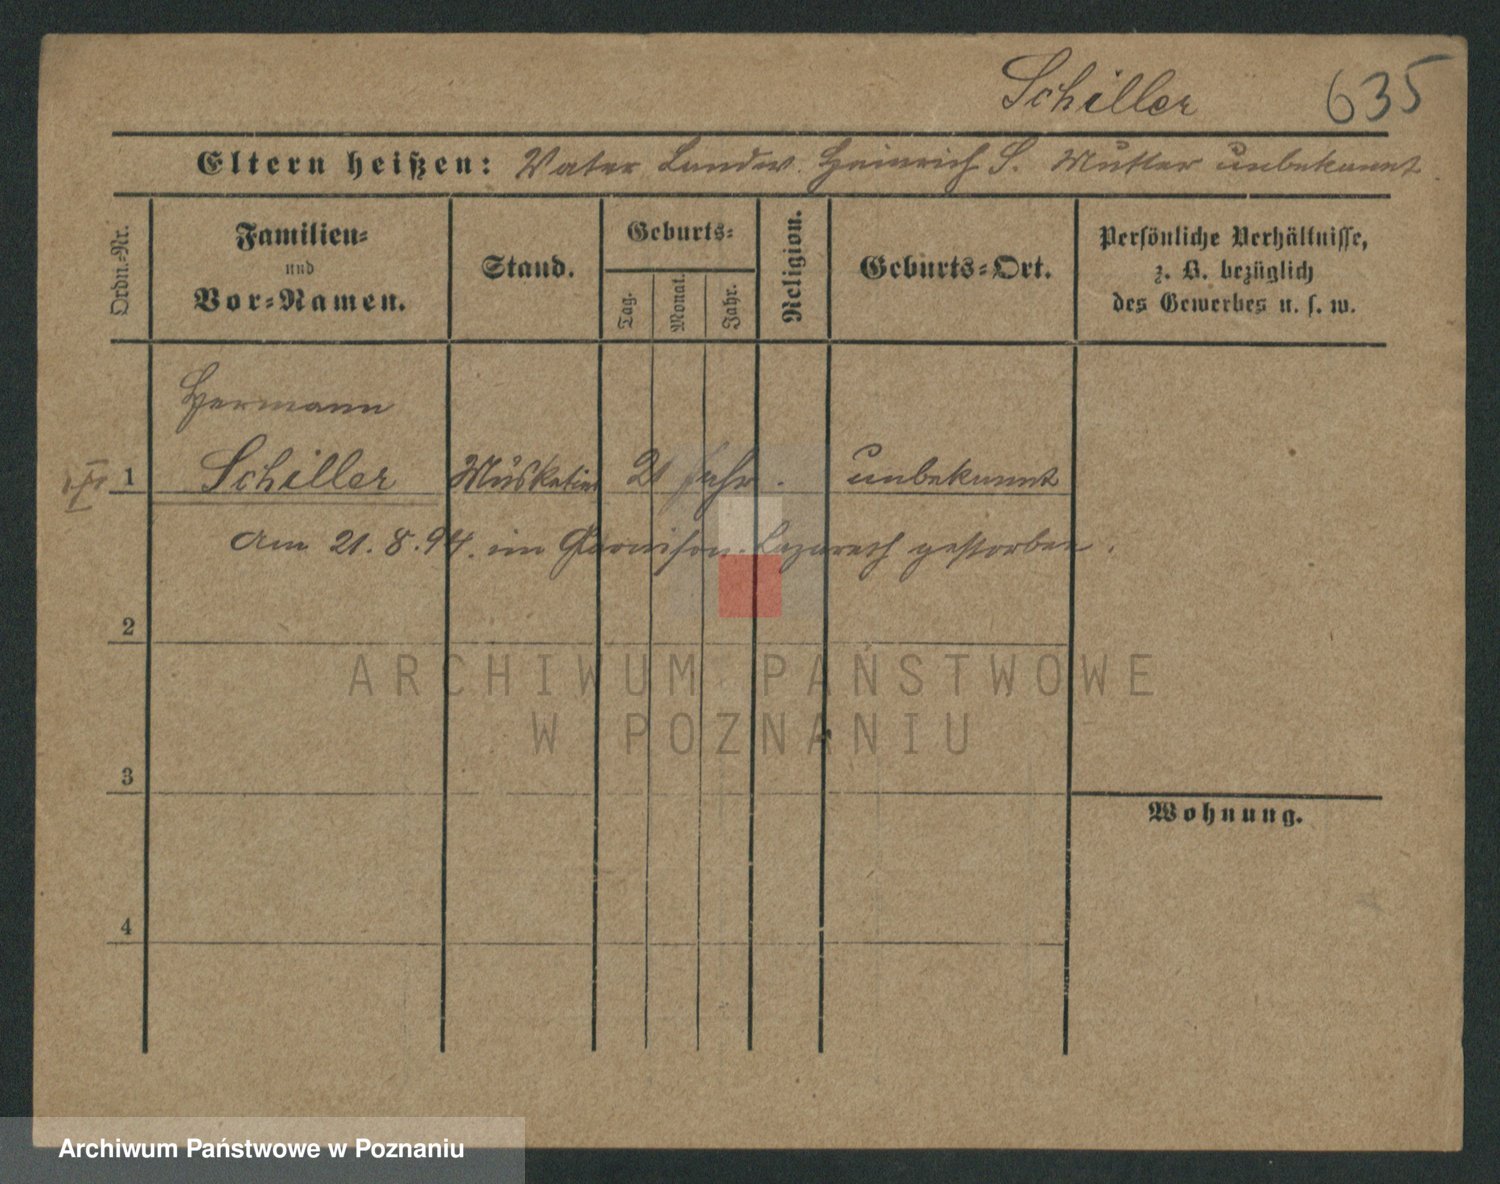 Schiller 635
Eltern heißen: Vater Landw. Heinrich S. Mutter unbekannt.
Ordn.-Nr.
Familien-
und
Vor-Namen.
Stand.
Geburts-
Tag.
Monat.
Jahr.
Religion.
Geburts-Ort.
Persönliche Verhältnisse,
z. B. bezüglich
des Gewerbes u. s. w.
Hermann
1 Schiller Musketier 21 Jahr. unbekannt
Am 21.8.94. im Garnison-Lazareth gestorben.
2
3
4
Wohnung.
ARCHIWUM PAŃSTWOWE
W POZNANIU
Archiwum Państwowe w Poznaniu